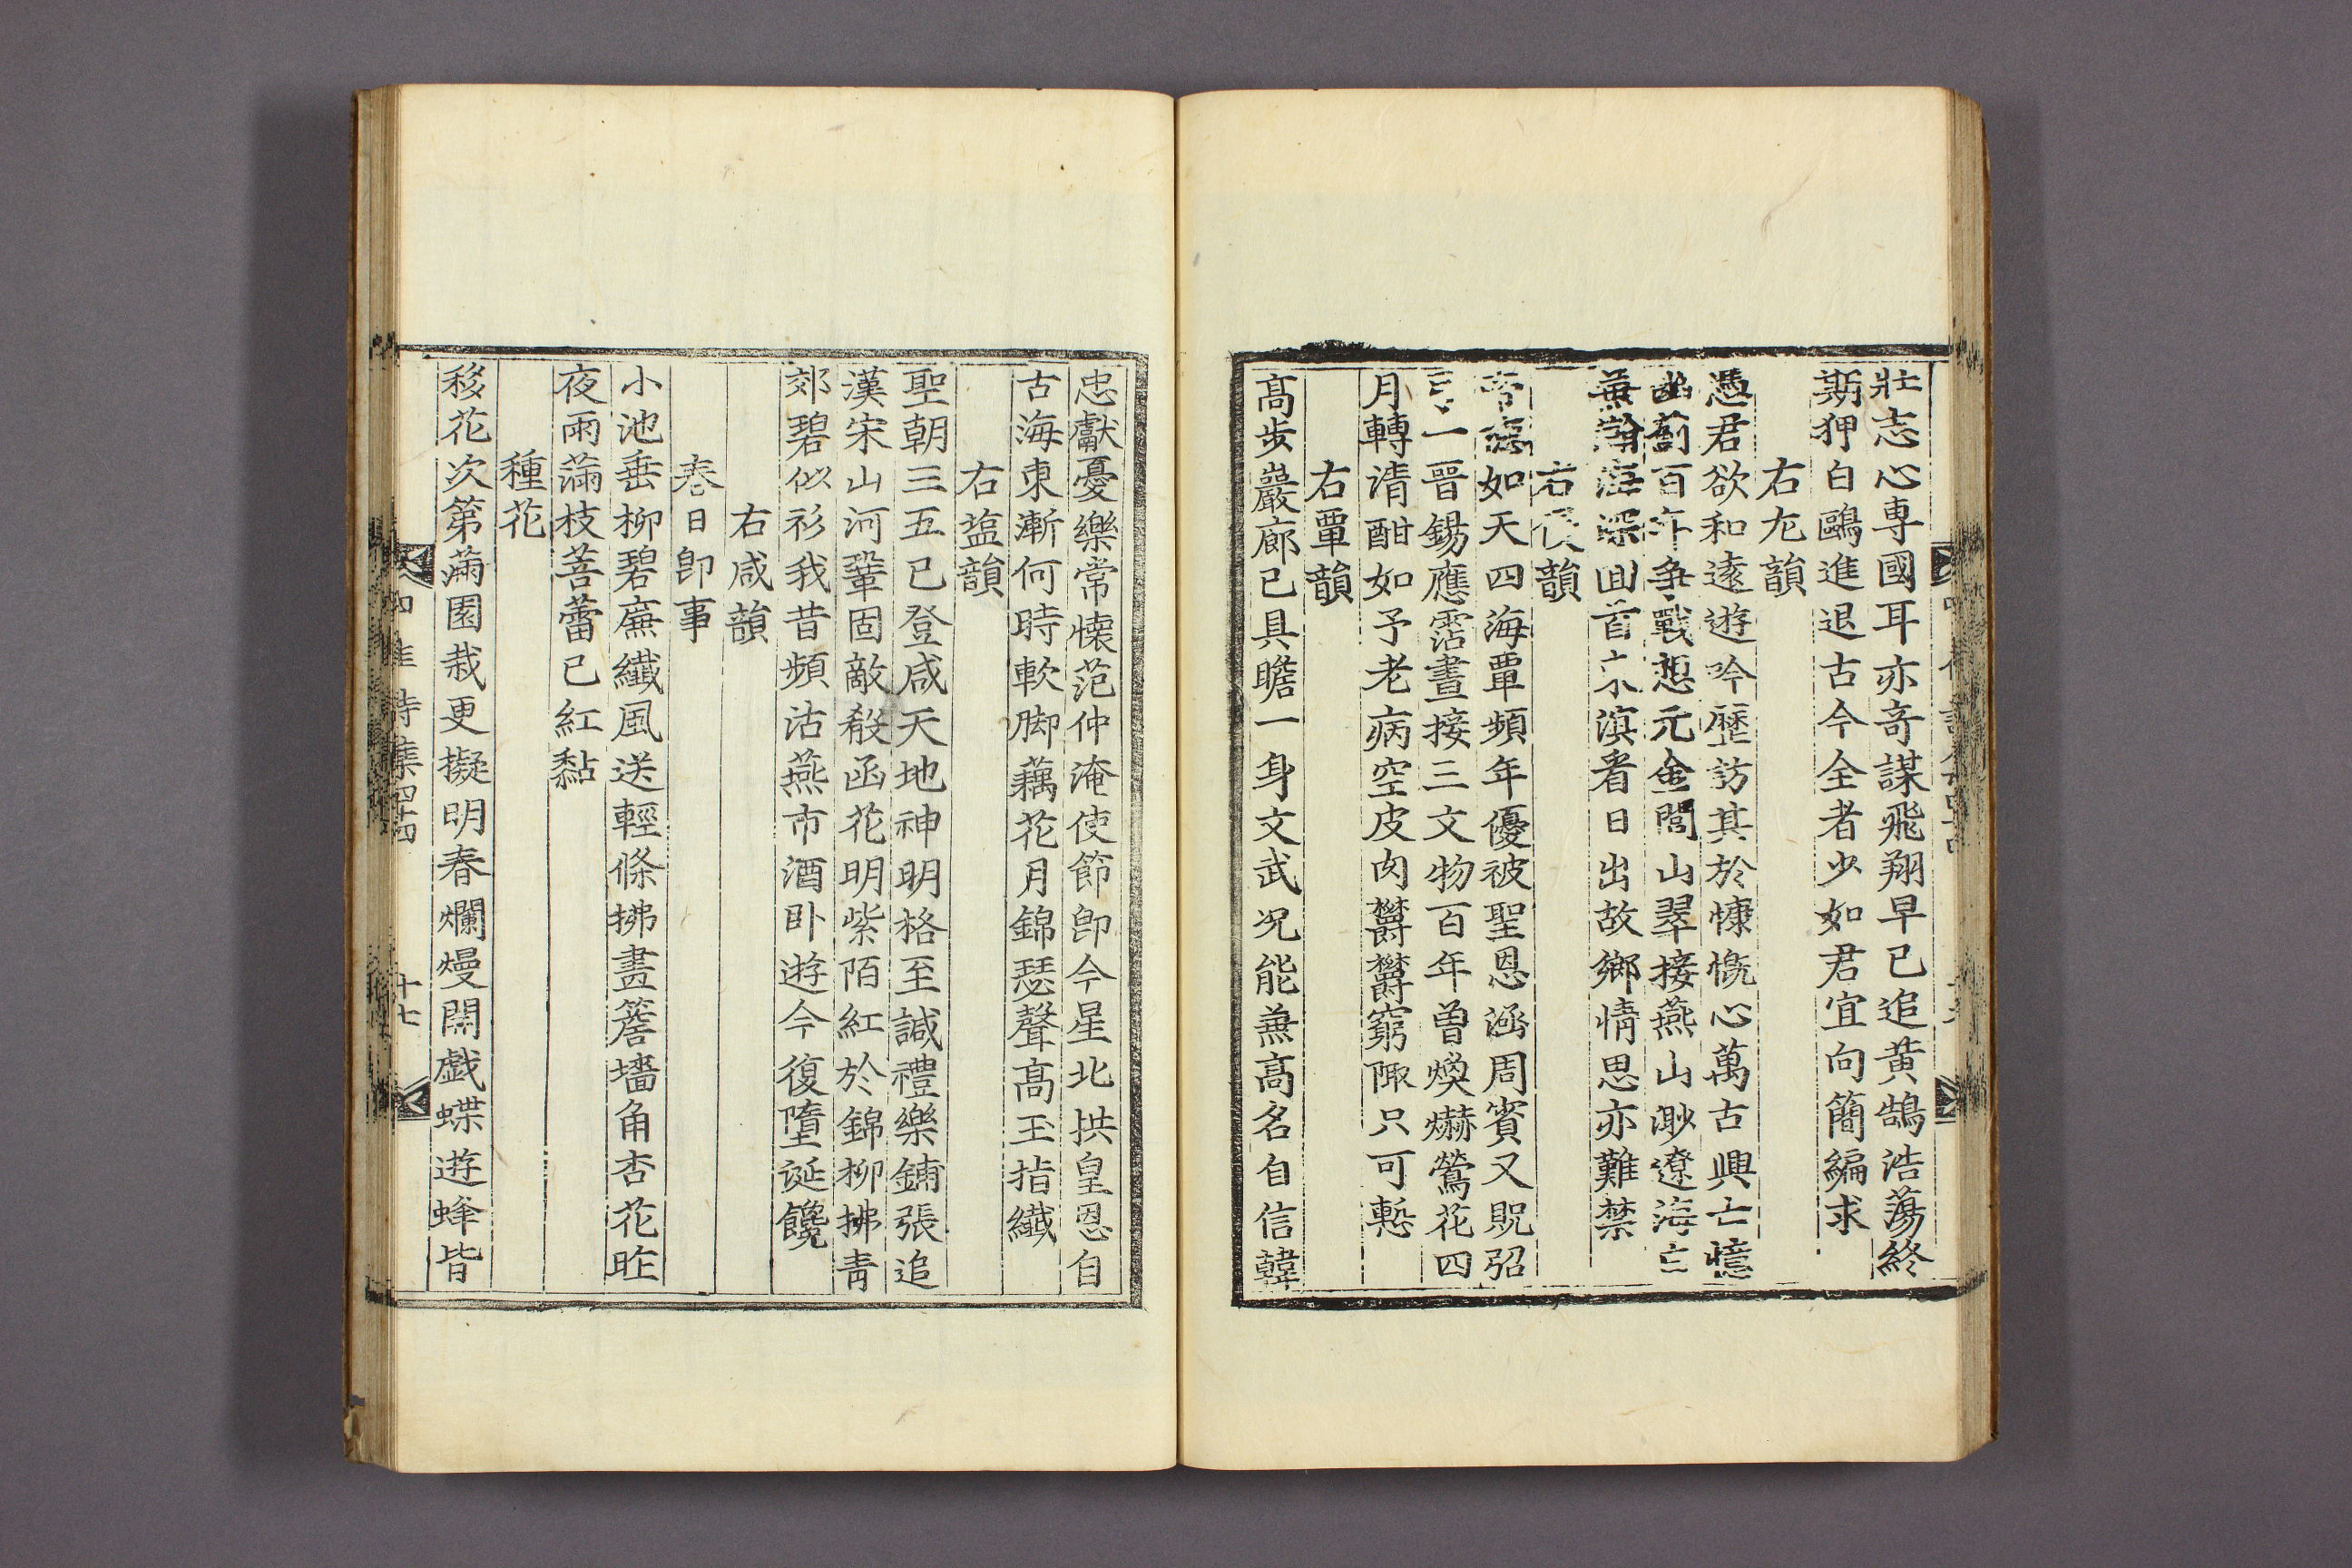 壯志心專國耳亦竒謀飛翔早已追黃鵠浩蕩終
期狎白鷗進退古今全者少如君宜向簡編求
右尤韻
憑君欲和遠遊吟歷訪其於慷慨心萬古興亡憶
幽薊百年爭戰想元金閭山翠接燕山渺遼海亡
兼瀚海深回首尔濱看日出故鄉情思亦難禁
右侵韻
帝德如天四海覃頻年優被聖恩涵周賓又貺弨
一晉錫應霑晝接三文物百年曾煥爀鶯花四
月轉清酣如予老病空皮肉欝欝窮陬只可慙
右覃韻
高步巖廊已具瞻一身文武况能兼高名自信韓
忠獻憂樂常懷范仲淹使節卽今星北拱皇恩自
古海東漸何時軟脚藕花月錦瑟聲高玉指纎
右塩韻
聖朝三五已登咸天地神明格至諴禮樂鋪張追
漢宋山河鞏固敵殽函花明紫陌紅於錦柳拂靑
郊碧似衫我昔頻沽燕市酒卧遊今復墮涎饞
右咸韻
春日卽事
小池垂柳碧㢘纎風送輕條拂畫簷墻角杏花昨
夜雨滿枝菩蕾已紅黏
種花
移花次第滿園栽更擬明春爛熳開戱蝶遊蜂皆
四佳詩集四十四
十七